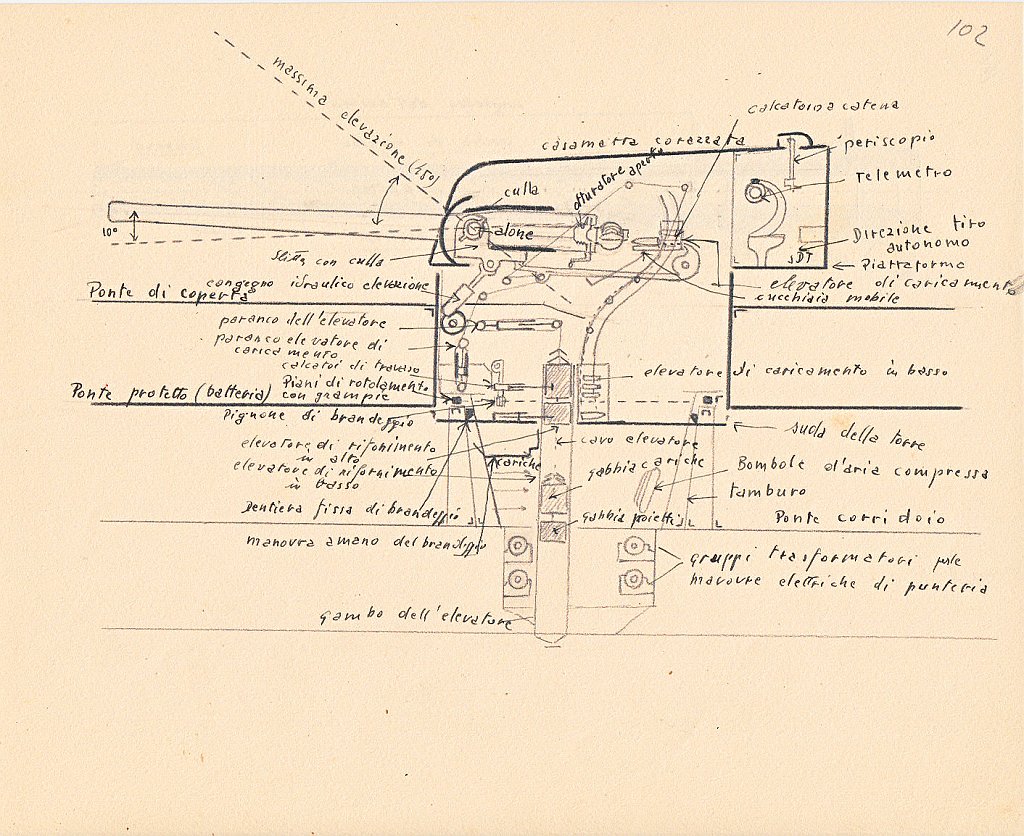 102
massima elevazione (45°)
calcatoio a catena
casamatta corazzata
periscopio
Telemetro
otturatore aperto
culla
alone
10°
slitta con culla
Direzione tiro
autonomo
SDT
Piattaforma
congegno idraulico elevazione
Ponte di coperta
elevatore di caricamento
cucchiaia mobile
paranco dell'elevatore
paranco elevatore di
caricamento
calcatoi di travaso
Piani di rotolamento
con grampie
Ponte protetto (batteria)
elevatore di caricamento in basso
Pignone di brandeggio
suola della torre
elevatore di rifornimento
in alto
cariche
cavo elevatore
elevatore di rifornimento
in basso
gabbia cariche
Bombole d'aria compressa
tamburo
Dentiera fissa di brandeggio
gabbia proietti
Ponte corridoio
manovra a mano del brandeggio
gruppi trasformatori per le
manovre elettriche di punteria
gambo dell'elevatore